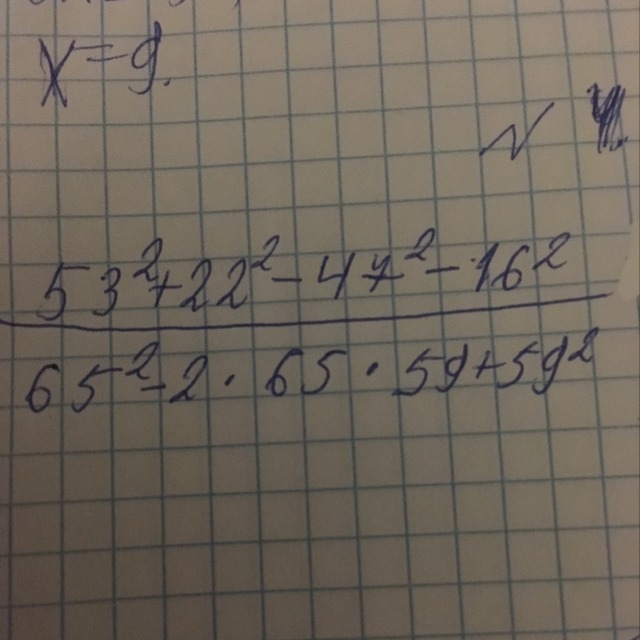 x = 9.
N 4.
53² + 22² - 47² - 16²
65² - 2 · 65 · 59 + 59²